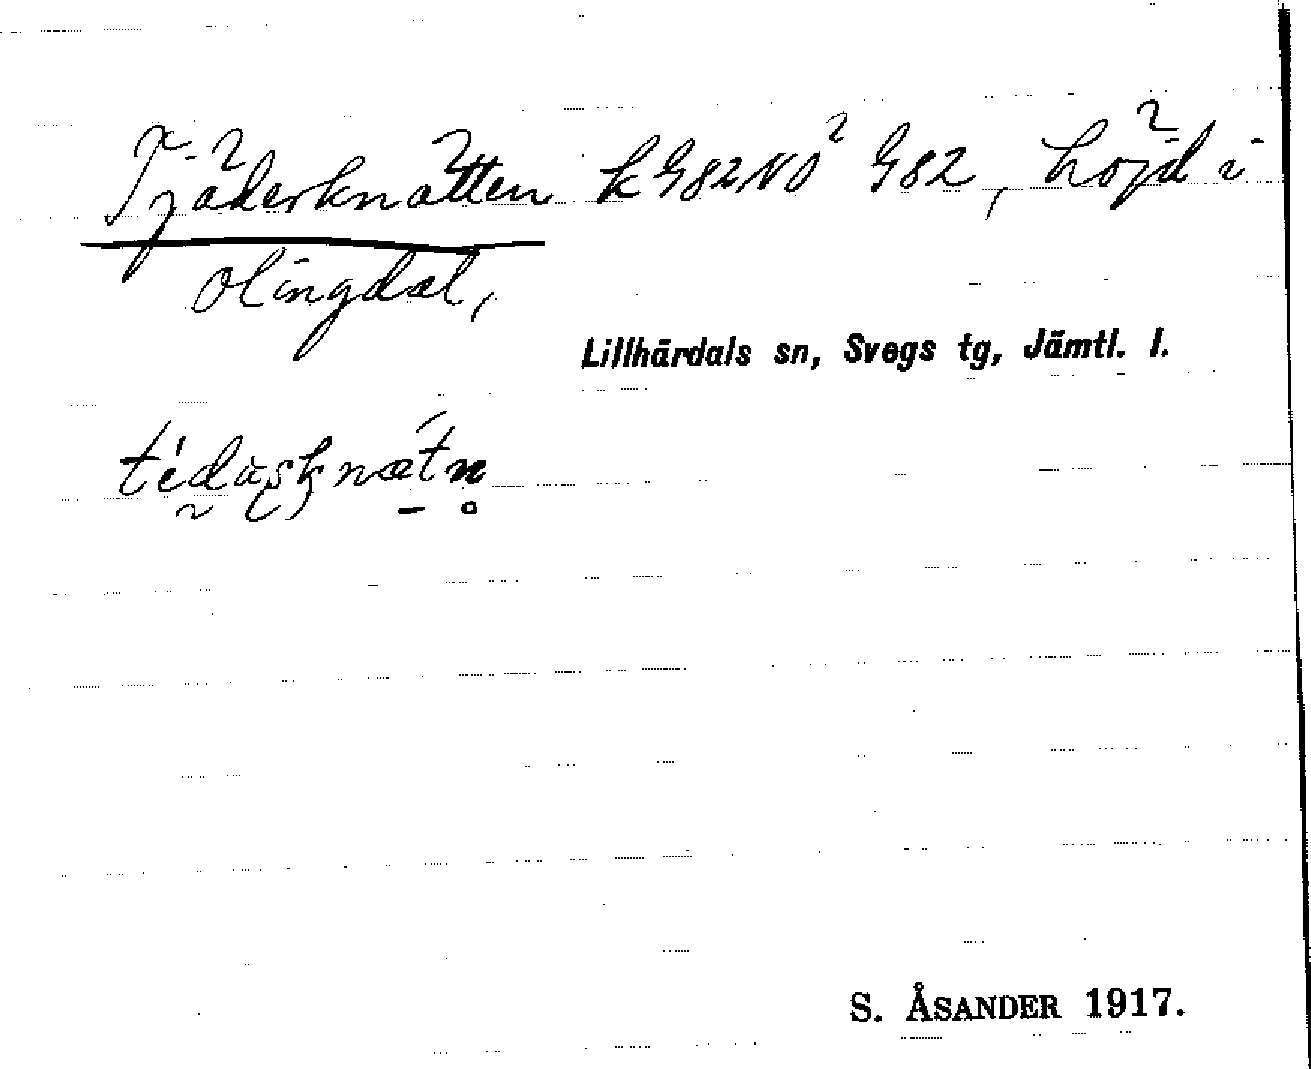 Tjäderknätten k G82NO² G82, höjd i
Olingdal,
Lillhärdals sn, Svegs tg, Jämtl. l.
S. ÅSANDER 1917.